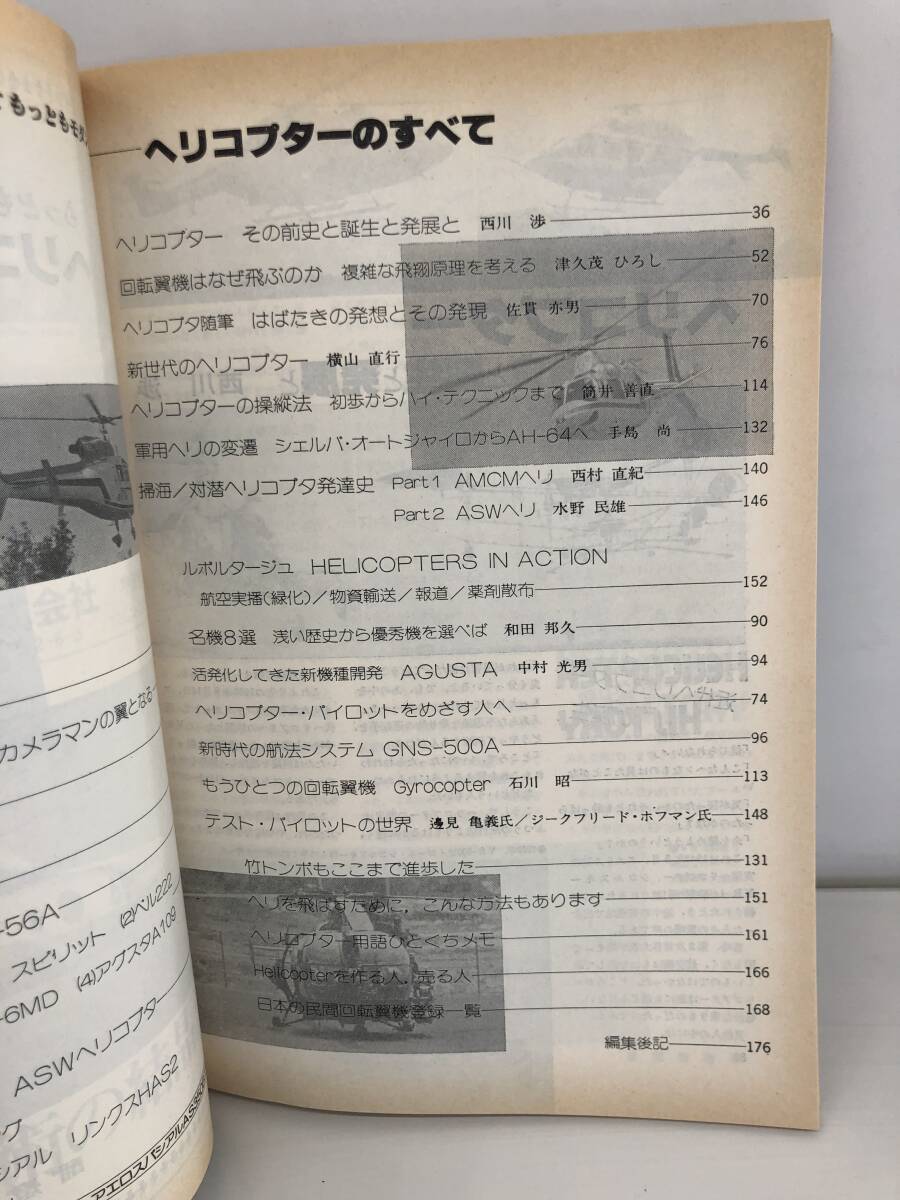 もっともモダ
カメラマンの翼となる
-56A
スピリット (2)ベル222
-6MD (4)アグスタA109
ASWヘリコプター
リンクスHAS2
アエロスパシアルAS350
ヘリコプターのすべて
ヘリコプター その前史と誕生と発展と 西川 渉 36
回転翼機はなぜ飛ぶのか 複雑な飛翔原理を考える 津久茂 ひろし 52
ヘリコプタ随筆 はばたきの発想とその発現 佐貫 亦男 70
新世代のヘリコプター 横山 直行 76
ヘリコプターの操縦法 初歩からハイ・テクニックまで 筒井 善直 114
軍用ヘリの変遷 シェルバ・オートジャイロからAH-64へ 手島 尚 132
掃海/対潜ヘリコプタ発達史 Part1 AMCMヘリ 西村 直紀 140
Part2 ASWヘリ 水野 民雄 146
ルポルタージュ HELICOPTERS IN ACTION
航空実播(緑化)/物資輸送/報道/薬剤散布 152
名機8選 浅い歴史から優秀機を選べば 和田 邦久 90
活発化してきた新機種開発 AGUSTA 中村 光男 94
ヘリコプター・パイロットをめざす人へ 74
新時代の航法システム GNS-500A 96
もうひとつの回転翼機 Gyrocopter 石川 昭 113
テスト・パイロットの世界 邊見 亀義氏/ジークフリード・ホフマン氏 148
竹トンボもここまで進歩した 131
ヘリを飛ばすために,こんな方法もあります 151
ヘリコプター用語ひとくちメモ 161
Helicopterを作る人,売る人 166
日本の民間回転翼機登録一覧 168
編集後記 176